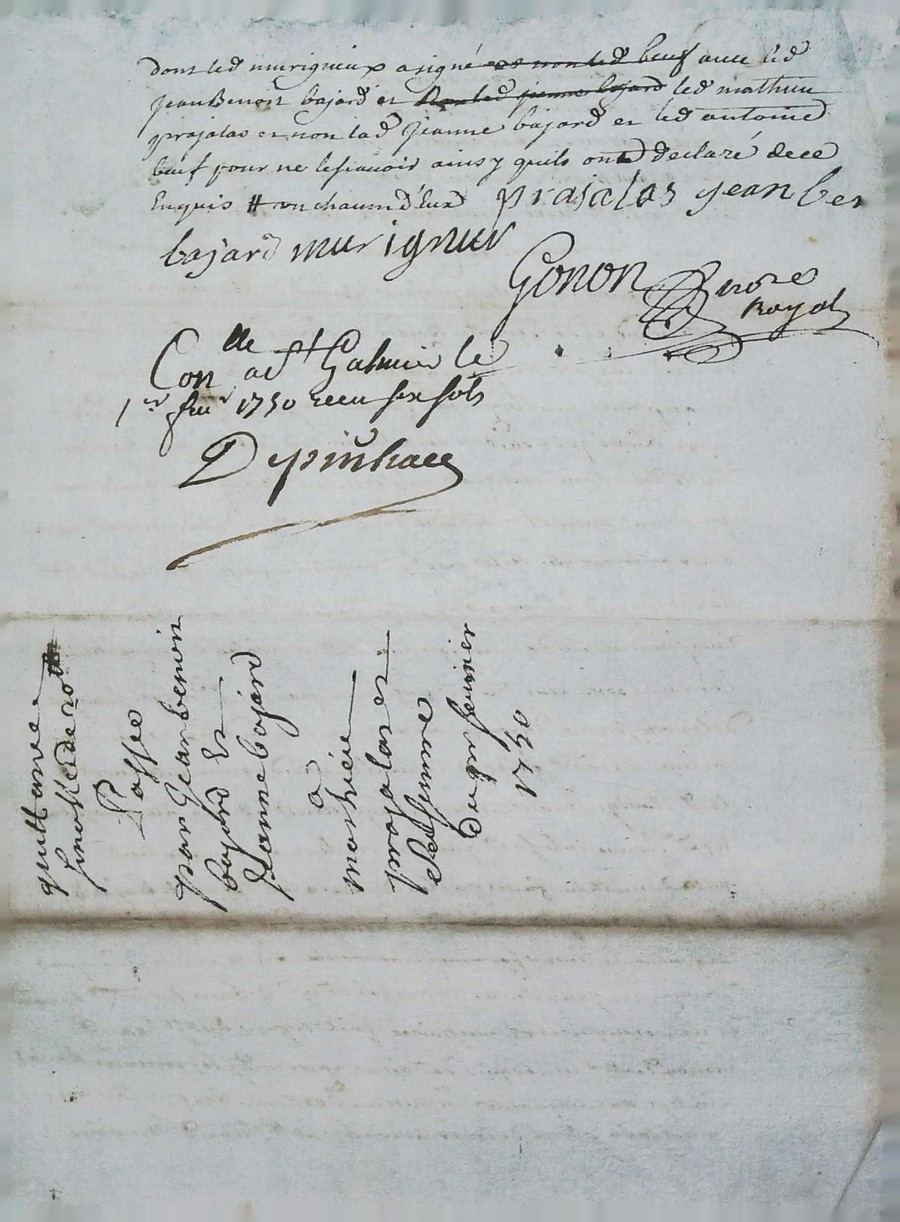 dont led murigneux a signé et non led beuf avec led
Jean Benoit bajard et non lad jeanne bajard led mathieu
prajalas et non lad Jeanne bajard et led antoine
beuf pour ne le scavoir ainsy quils ont declaré de ce
Enquis # un chacun d'Eux prajalas jean ben
bajard murigneux
Gonon No.re
Royal
Con.lle a S.t Galmier le
1.er fev.r 1730 receu six sols
Depinhac
quittance
finalle de
Passée
par Jean benoit
bajard Et
Jeanne bajard
à
mathieu
prajalas et
sa femme
Du p.r fevrier
1730